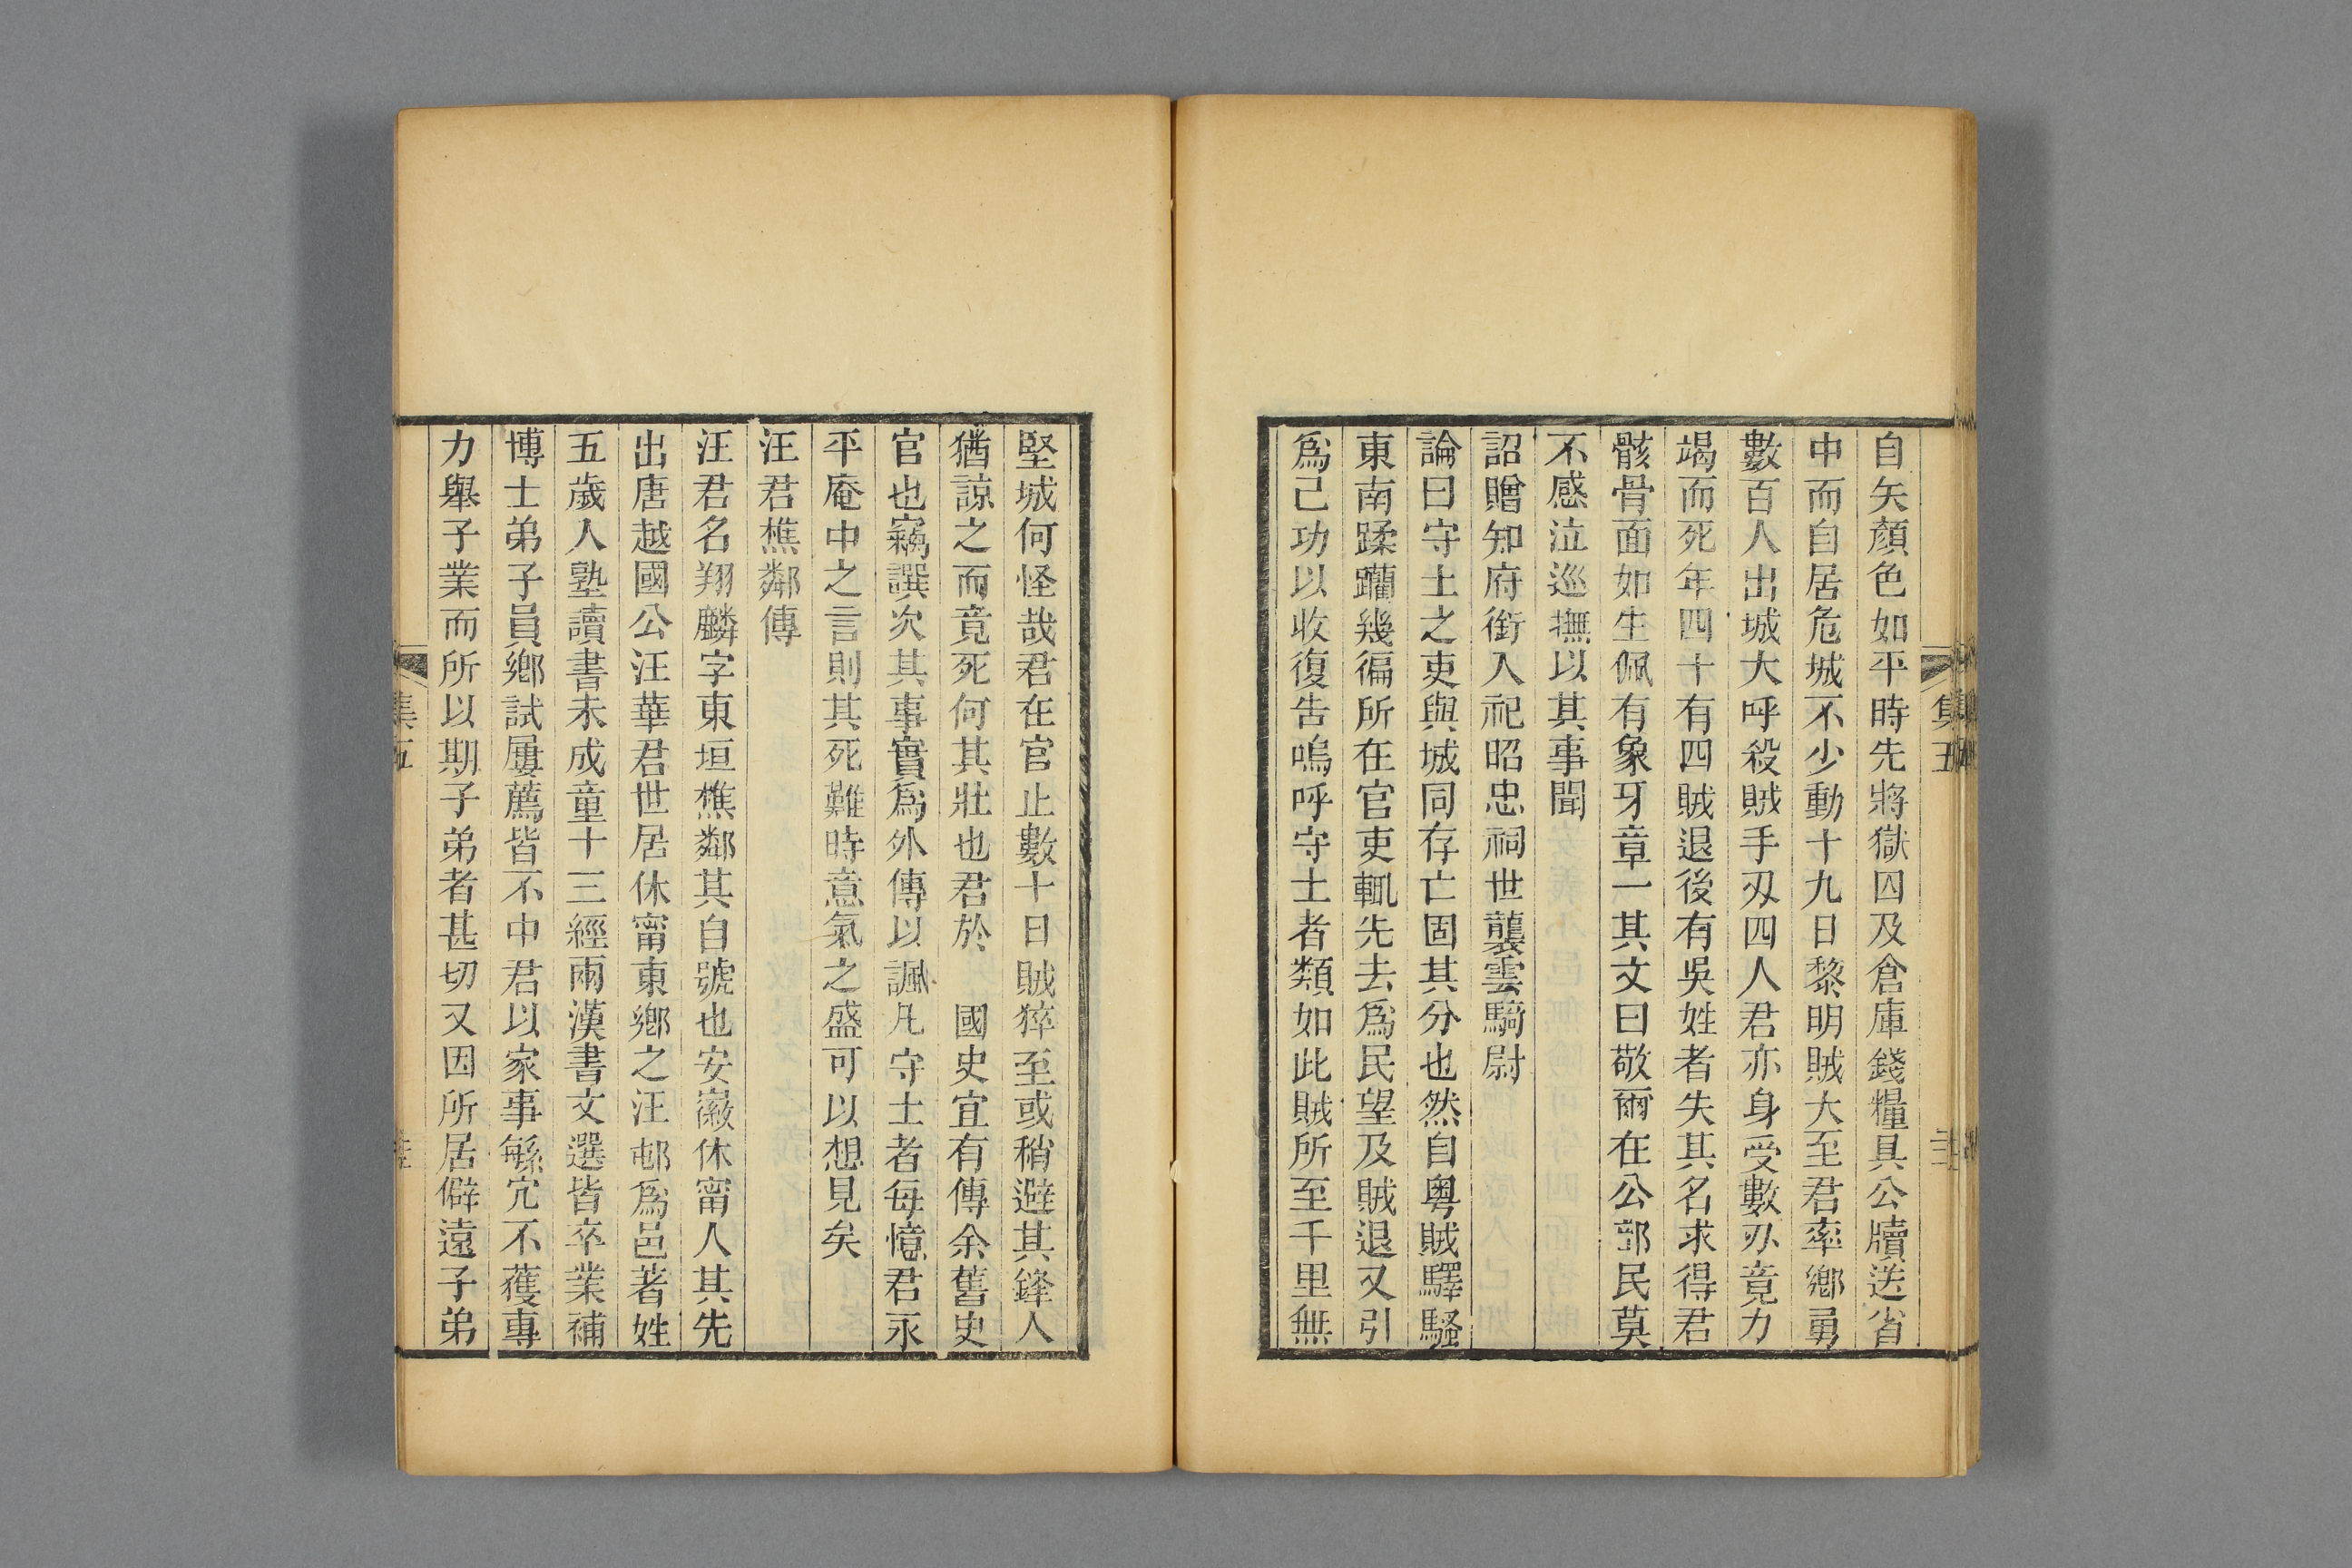 自矢顏色如平時先將獄囚及倉庫錢糧具公牘送省
中而自居危城不少動十九日黎明賊大至君率鄉勇
數百人出城大呼殺賊手刃四人君亦身受數刃竟力
竭而死年四十有四賊退後有吳姓者失其名求得君
骸骨面如生佩有象牙章一其文曰敬爾在公郭民莫
不感泣巡撫以其事聞
詔贈知府銜入祀昭忠祠世襲雲騎尉
論曰守土之吏與城同存亡固其分也然自粵賊驛騷
東南蹂躪幾徧所在官吏輒先去爲民望及賊退又引
爲己功以收復告嗚呼守土者類如此賊所至千里無
堅城何怪哉君在官止數十日賊猝至或稍避其鋒人
猶諒之而竟死何其壯也君於　國史宜有傳余舊史
官也竊譔次其事實爲外傳以諷凡守土者每憶君永
平庵中之言則其死難時意氣之盛可以想見矣
汪君樵鄰傳
汪君名翔麟字東垣樵鄰其自號也安徽休甯人其先
出唐越國公汪華君世居休甯東鄉之汪邨爲邑著姓
五歲入塾讀書未成童十三經兩漢書文選皆卒業補
博士弟子員鄉試屢薦皆不中君以家事緐宂不獲專
力舉子業而所以期子弟者甚切又因所居僻遠子弟
集五